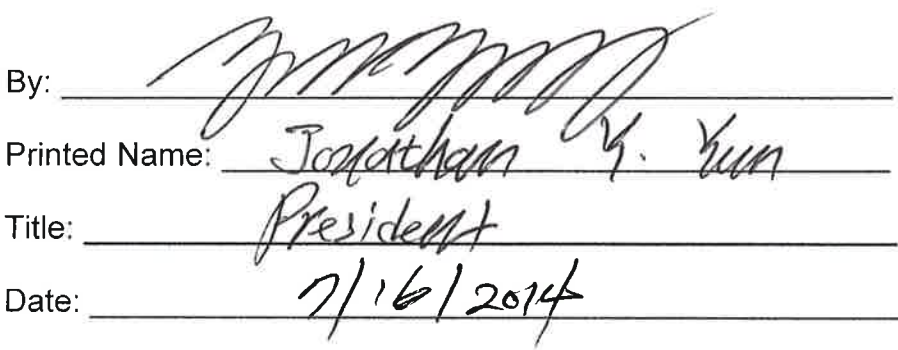 By:
Printed Name: Jonathan Y. Yun
Title: President
Date: 7/16/2014